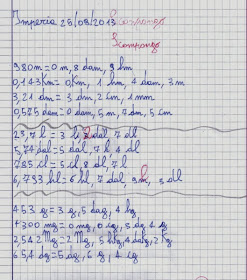 Imperia 25/09/2013 Scompongo
Scompongo
980m = 0 m, 8 dam, 9 hm
0,143Km = 0 Km, 1 hm, 4 dam, 3m
3,21 dm = 3 dm, 2 cm, 1 mm
0,575 dam = 0 dam, 5 m, 7 dm, 5 cm
23,7 l = 3 l 2 dal, 7 dl
5,74 dal = 5 dal, 7 l, 4 dl
785 cl = 5 cl, 8 dl, 7 l
6,793 hl = 6 hl, 7 dal, 9 l, 3 dl
453 g = 3 g, 5 dag, 4 hg
4300 mg = 0 mg, 0 cg, 3 dg, 4 g
2542 Mg = 2 Mg, 5 hg, 4 dag, 2 kg
654 dg = 5 dg, 6 g, 4 cg